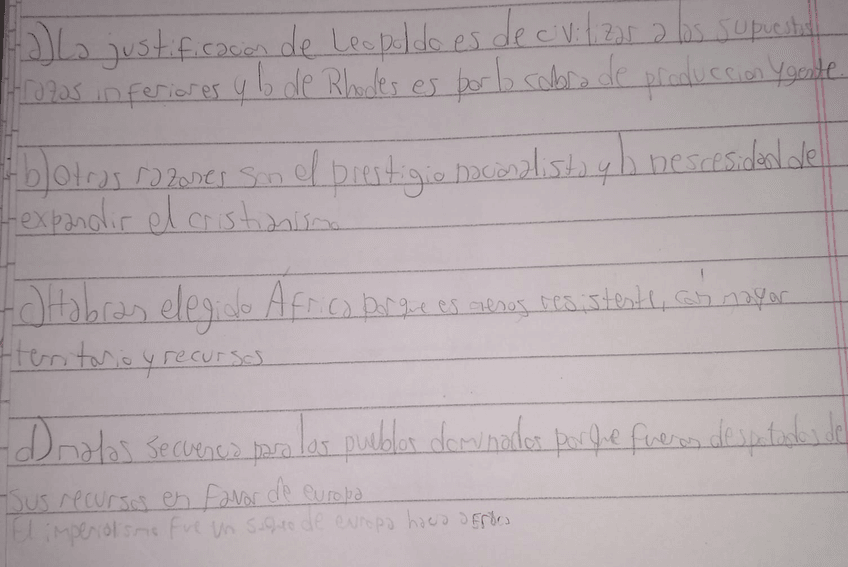 a) La justificacion de Leopoldo es de civilizar a las supuestas
razas inferiores y la de Rhodes es por la sobra de produccion y gente.
b) Otras razones son el prestigio nacionalista y la nescesidad de
expandir el cristianismo
c) Habran elegido África porque es menos resistente, con mayor
territorio y recursos
d) malas secuencia para los pueblos dominados porque fueron despojados de
sus recursos en favor de europa
El imperialismo fue un de europa hacia